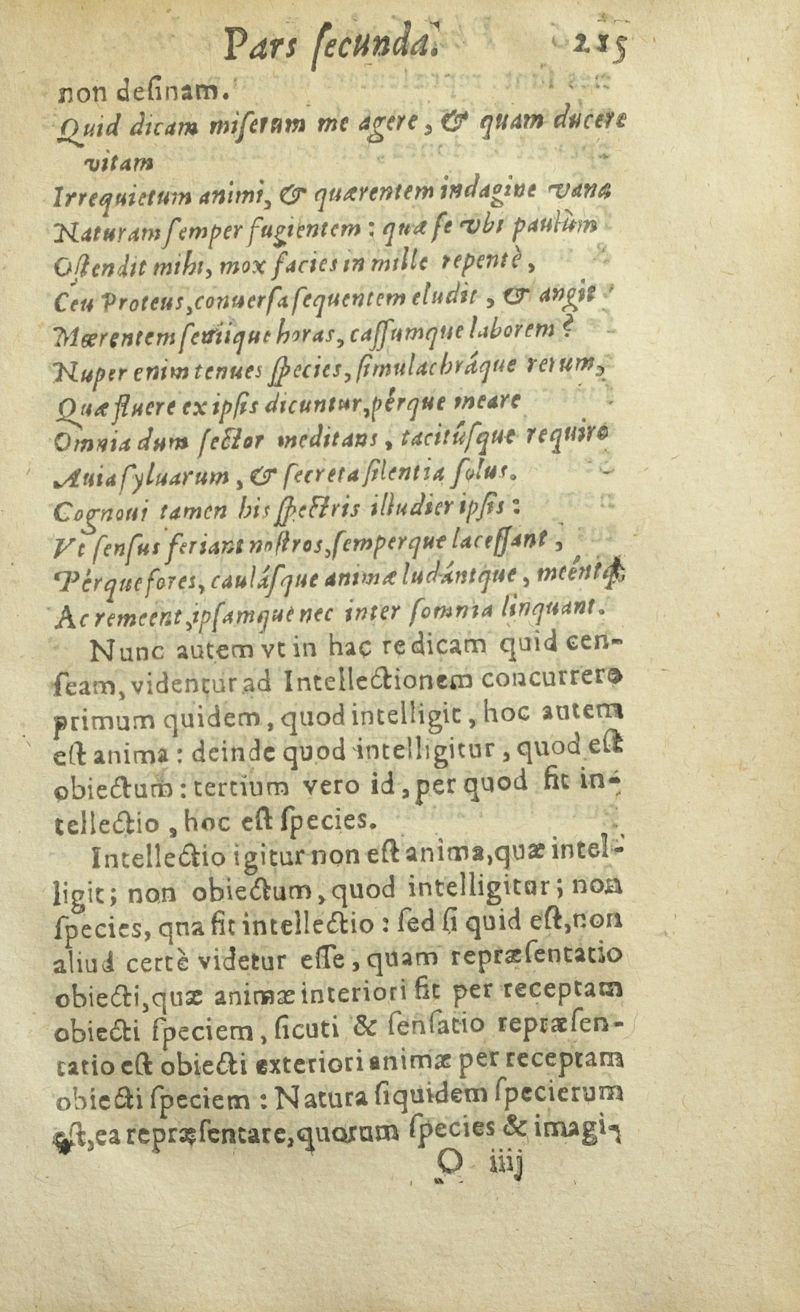 Pars ſecunda. 215
non deſinam.
Quid dicam miſerum me agere, & quam ducere
vitam
Irrequietum animi, & quærentem indagine vana
Naturam ſemper fugientem : quæ ſe vbi paulùm
Oſtendit mihi, mox facies in mille repentè,
Ceu Proteus, conuerſa ſequentem eludit, & angit
Mœrentem ſeniique horas, caſſumque laborem ?
Nuper enim tenues ſpecies, ſimulachráque rerum,
Quæ fluere ex ipſis dicuntur, pérque meare
Omnia dum ſector meditans, tacitúſque requiro
Auia ſyluarum, & ſecreta ſilentia ſolus.
Cognoui tamen his ſpectris illudier ipſis :
Vt ſenſus feriant noſtros, ſemperque laceſſant,
Pérque fores, cauláſque animæ ludántque, meéntq;
Ac remeent, ipſamque nec inter ſomnia linquant.
Nunc autem vt in hac re dicam quid cen-
ſeam, videntur ad Intellectionem concurrere
primum quidem, quod intelligit, hoc autem
eſt anima : deinde quod intelligitur, quod eſt
obiectum : tertium vero id, per quod fit in-
tellectio, hoc eſt ſpecies.
Intellectio igitur non eſt anima, quæ intel-
ligit; non obiectum, quod intelligitur; non
ſpecies, qna fit intellectio : ſed ſi quid eſt, non
aliud certè videtur eſſe, quam repræſentatio
obiecti, quæ animæ interiori fit per receptam
obiecti ſpeciem, ſicuti & ſenſatio repræſen-
tatio eſt obiecti exteriori animæ per receptam
obiecti ſpeciem : Natura ſiquidem ſpecierum
eſt, ea repræſentare, quorum ſpecies & imagi-
O iiij